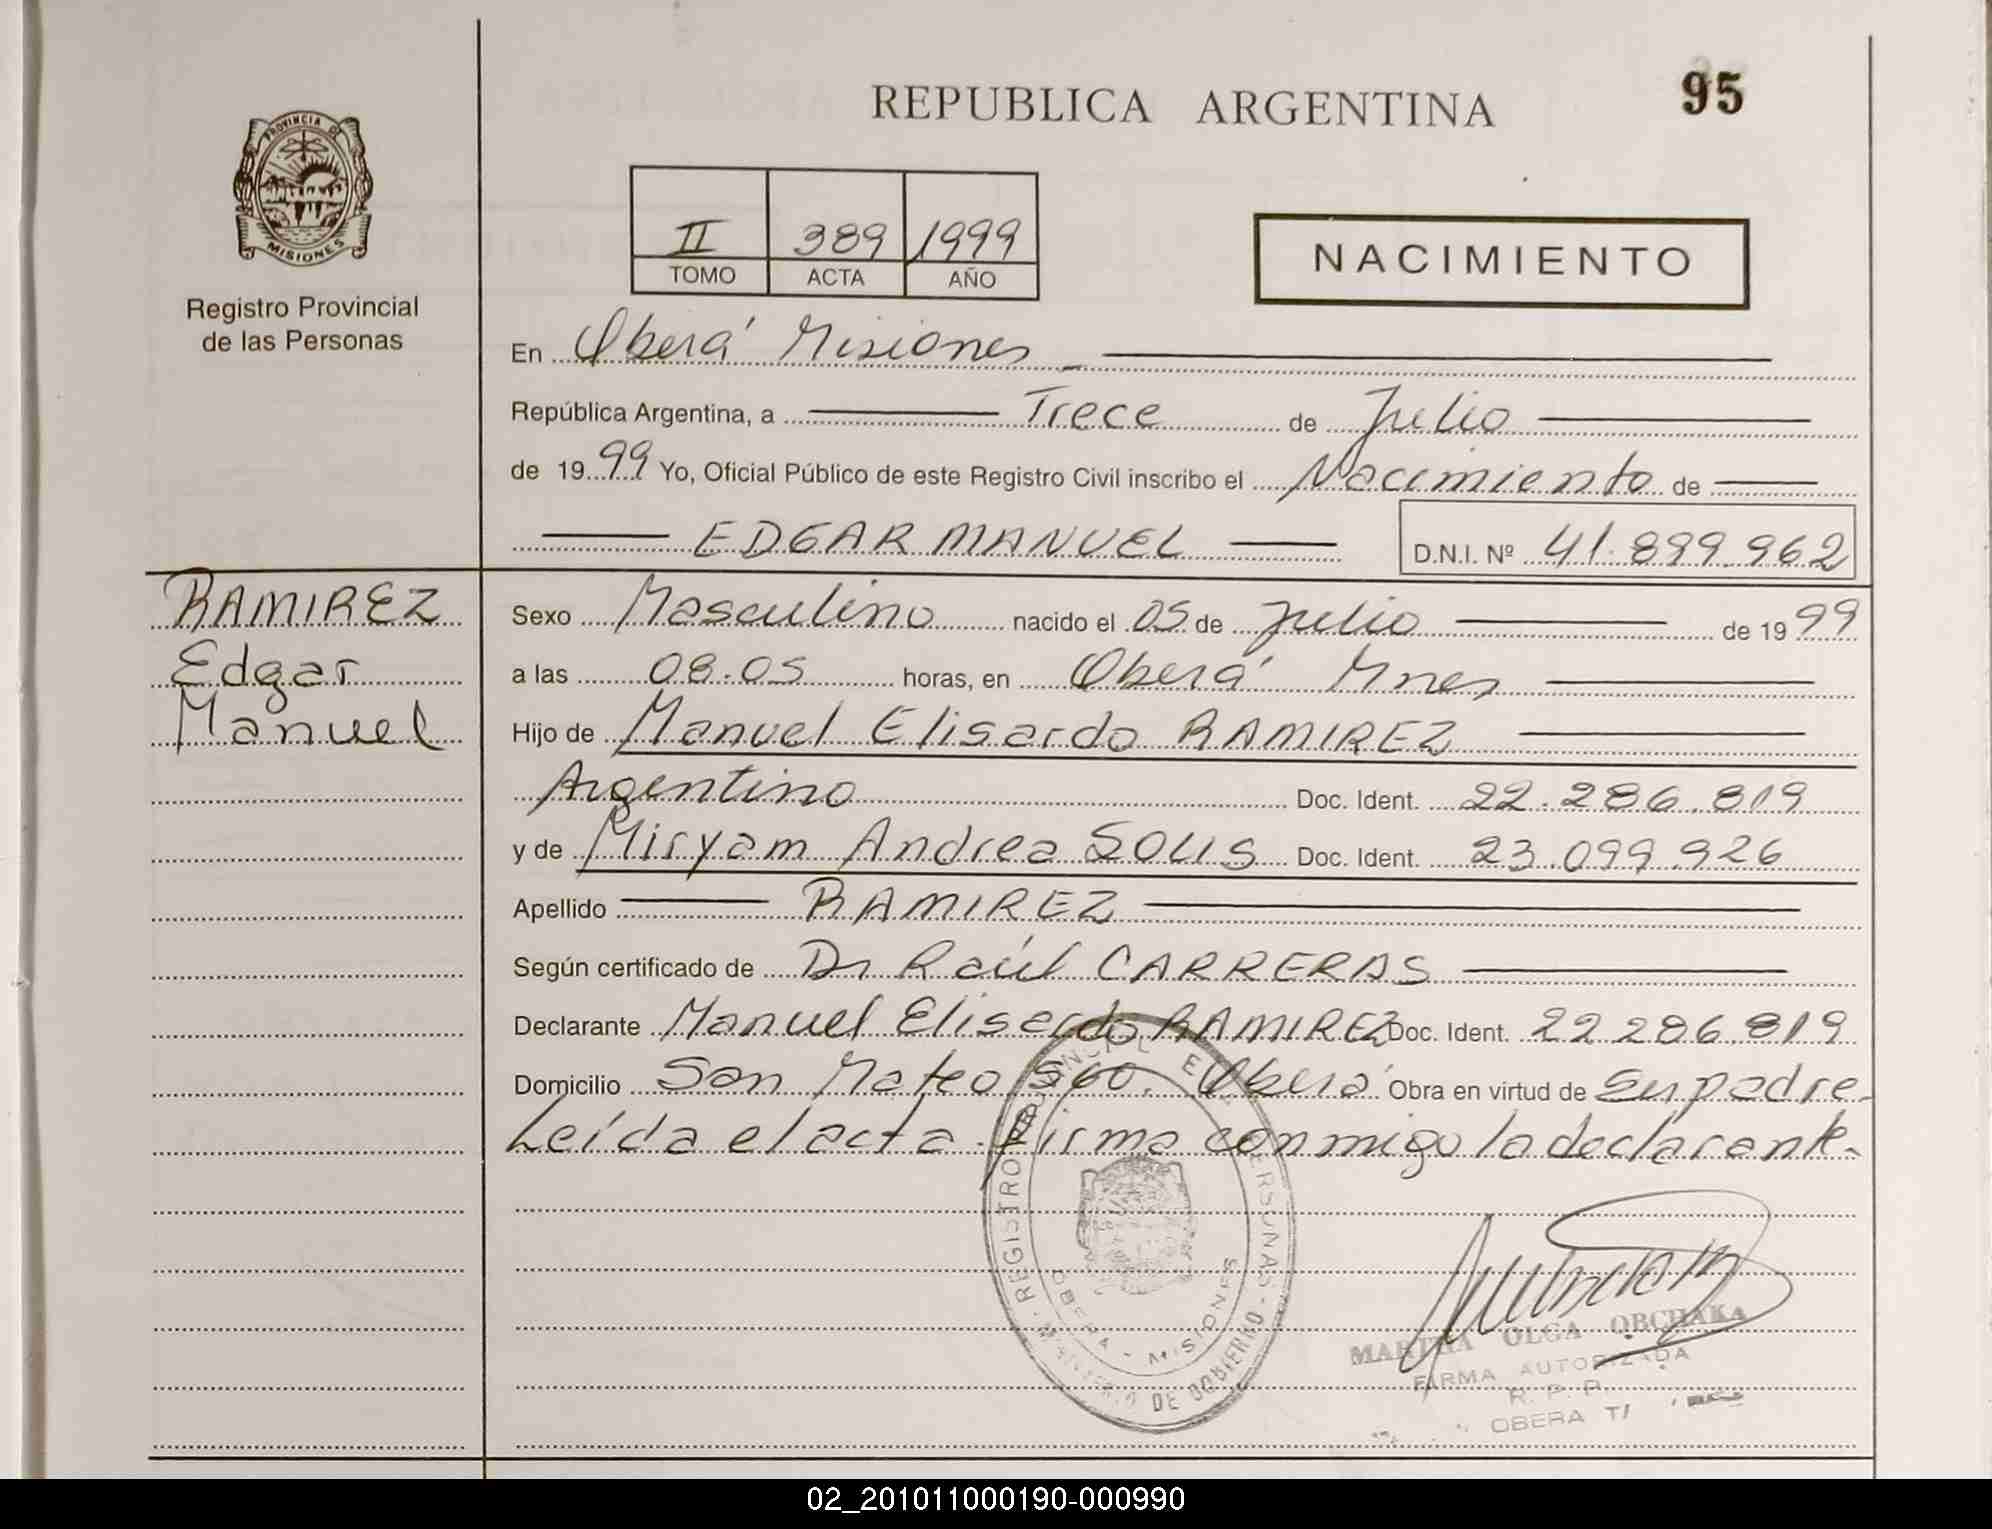 REPUBLICA ARGENTINA
95
PROVINCIA DE
MISIONES
Registro Provincial
de las Personas
II 389 1999
TOMO ACTA AÑO
NACIMIENTO
En Oberá Misiones
República Argentina, a Trece de Julio
de 1999 Yo, Oficial Público de este Registro Civil inscribo el Nacimiento de
EDGAR MANUEL D.N.I. Nº 41.899.962
RAMIREZ
Edgar
Manuel
Sexo Masculino nacido el 05 de Julio de 1999
a las 08.05 horas, en Oberá Mnes
Hijo de Manuel Elisardo RAMIREZ
Argentino Doc. Ident. 22.286.819
y de Miryam Andrea SOLIS Doc. Ident. 23.099.926
Apellido RAMIREZ
Según certificado de Dr Raúl CARRERAS
Declarante Manuel Elisardo RAMIREZ Doc. Ident. 22286.819
Domicilio San Mateo 560. Oberá Obra en virtud de Su padre.
Leída el acta. Firma conmigo la declarante.
REGISTRO PROVINCIAL DE LAS PERSONAS
MINISTERIO DE GOBIERNO
OBERA - MISIONES
MARTHA OLGA OBCHAKA
FIRMA AUTORIZADA
R. P. P.
OBERA
02_201011000190-000990